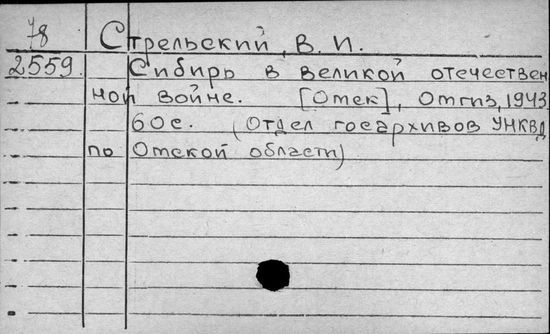 78
Стрельский, В. И.
2559. Сибирь в великой отечествен
ной войне. [Омск], Омгиз, 1943.
60с. (Отдел госархивов УНКВД
по Омской области)